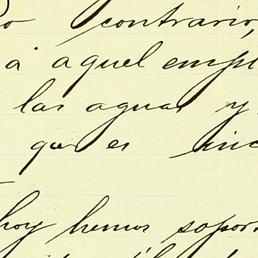 contrario,
á aquel empl
las aguas y
que es inc
hoy hemos sopor